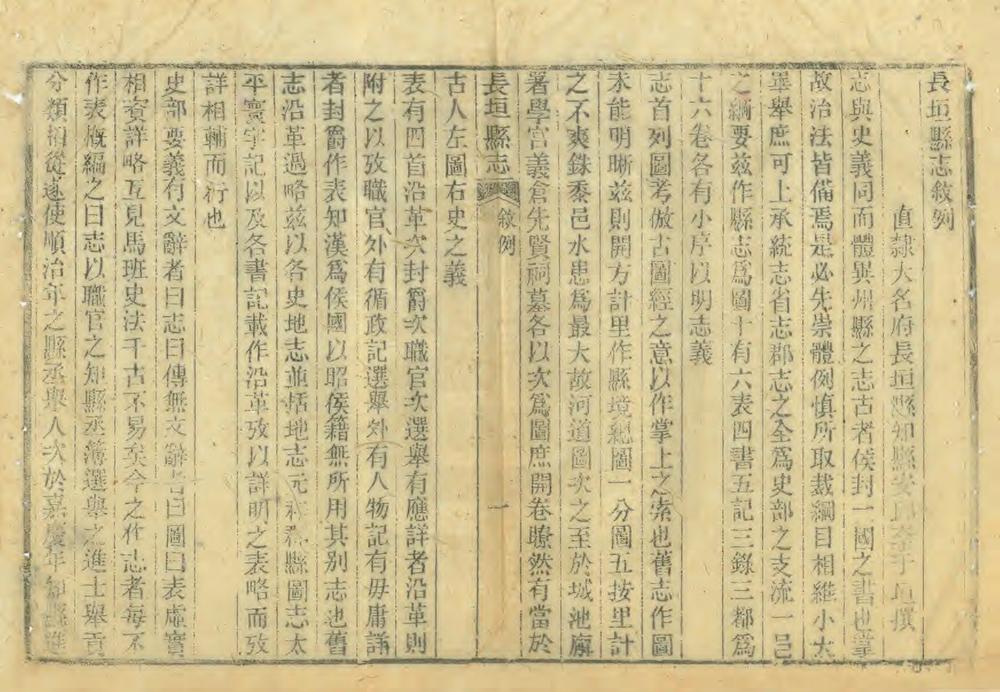 長垣縣志敘例
直隷大名府長垣縣知縣安邱李于垣撰
志與史義同而體異州縣之志古者侯封一國之書也掌
故治法皆備焉是必先崇體例慎所取裁綱目相維小大
畢舉庶可上承統志省志郡志之全爲史部之支流一邑
之綱要兹作縣志爲圖十有六表四書五記三錄三都爲
十六卷各有小序以明志義
志首列圖考倣古圖經之意以作掌上之索也舊志作圖
未能明晰兹則開方計里作縣境總圖一分圖五按里計
之不爽銖黍邑水患爲最大故河道圖次之至於城池廟
署學宫義倉先賢祠墓各以次爲圖庶開卷瞭然有當於
長垣縣志 敘例 一
古人左圖右史之義
表有四首沿革次封爵次職官次選舉有應詳者沿革則
附之以攷職官外有循政記選舉外有人物記有毋庸詳
者封爵作表知漢爲侯國以昭侯籍無所用其别志也舊
志沿革過略兹以各史地志並括地志元和郡縣圖志太
平寰宇記以及各書記載作沿革攷以詳明之表略而攷
詳相輔而行也
史部要義有文辭者曰志曰傳無文辭者曰圖曰表虛實
相資詳略互見馬班史法千古不易矣今之作志者每不
作表槪編之曰志以職官之知縣丞簿選舉之進士舉貢
分類相從遂使順治年之縣丞舉人次於嘉慶年知縣進